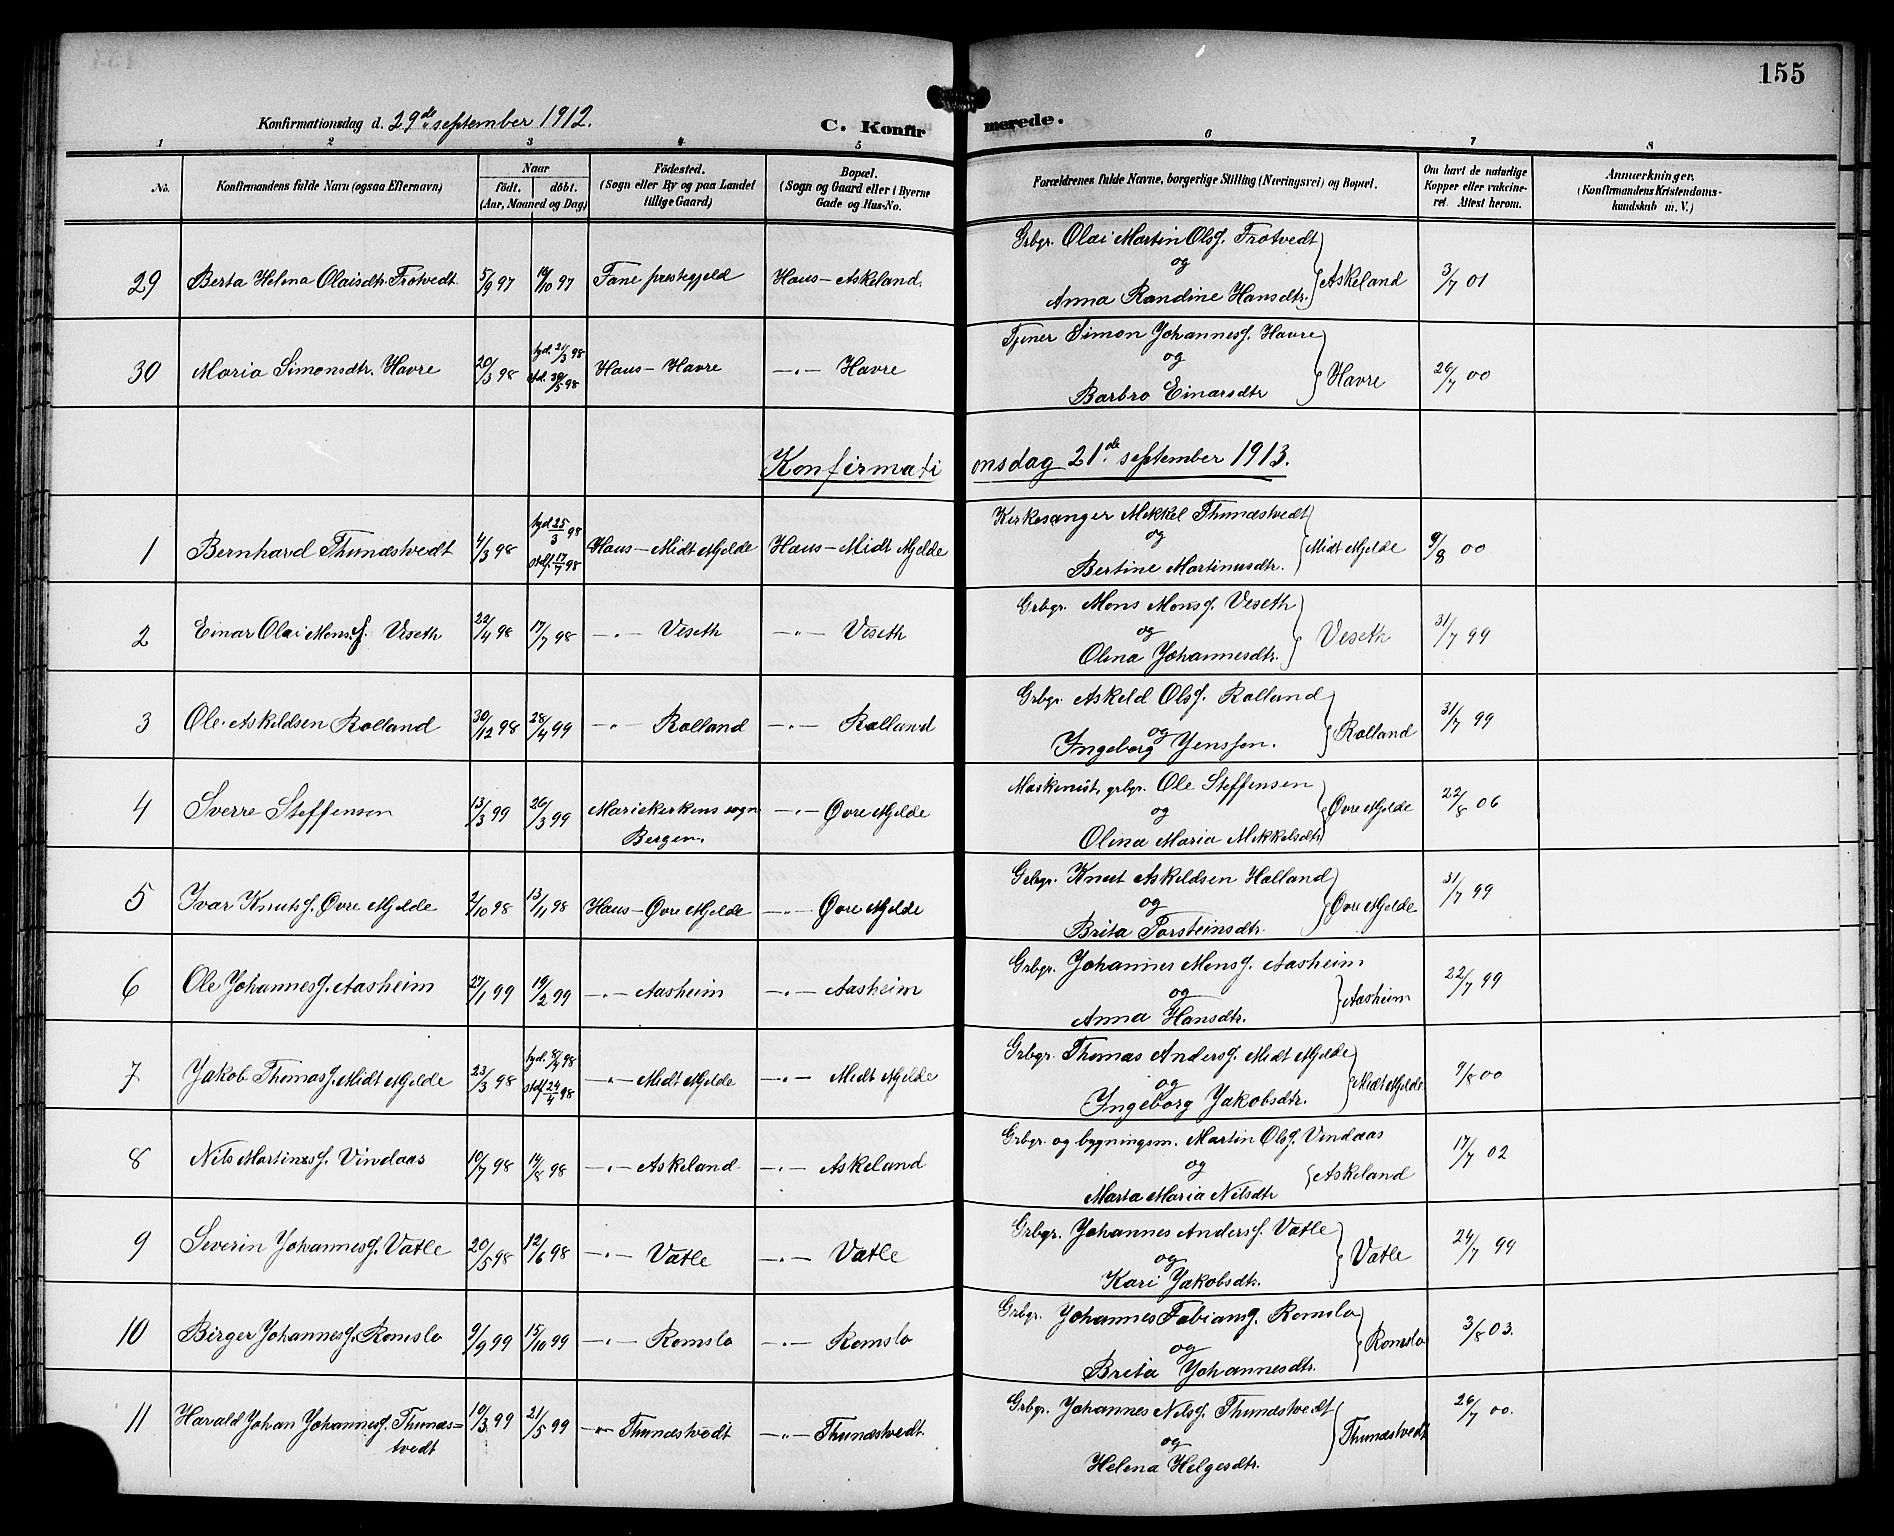 155
Konfirmationsdag d. 29de september 1912. C. Konfirmerede.
1 2 3 4 5 6 7 8
No. Konfirmandens fulde Navn (ogsaa Efternavn) Naar födt. döbt. (Aar, Maaned og Dag) Födested. (Sogn eller By og paa Landet tillige Gaard) Bopæl. (Sogn og Gaard eller i Byerne Gade og Hus-No. Forældrenes fulde Navne, borgerlige Stilling (Næringsvei) og Bopæl. Om havt de naturlige Kopper eller vakcineret. Attest herom. Anmærkninger. (Konfirmandens Kristendomskundskab m. V.)
29 Berta Helena Olaisdtr. Trotvedt 5/9 97 /10 97 Fane prestegjeld Haus - Askeland. Grbgr. Olai Martin Olsf. Trotvedt og Anna Randine Hansdtr. } Askeland 3/7 01
30 Maria Simonsdtr. Havre 20/3 98 hjd. 21/3 98 st. 30/5 98 Haus - Havre -"- Havre Tjener Simon Johannesf. Havre og Barbro Einarsdtr } Havre 26/7 00
Konfirmationsdag 21de september 1913.
1 Bernhard Thunæstvedt 4/3 98 hjd 25/3 98 stdf. 17/7 98 Haus - Midt Mjelde Haus - Midt Mjelde Kirkesanger Mikkel Thunæstvedt og Bertine Martinusdtr. } Midt Mjelde 9/8 00
2 Einar Olai Monsf. Veseth 22/4 98 17/7 98 -"- Veseth -"- Veseth Grbgr. Mons Monsf. Veseth og Olina Johannesdtr. } Veseth 31/7 99
3 Ole Askildsen Rolland 30/12 98 28/4 99 -"- Rolland -"- Rolland Grbgr. Askeld Olsf. Rolland og Ingeborg Jenssen. } Rolland 31/7 99
4 Sverre Steffensen 13/3 99 26/3 99 Mariekirkens sogn Bergen. -"- Øvre Mjelde Maskinist, grbgr. Ole Steffensen og Olina Maria Mikkelsdtr } Øvre Mjelde 22/8 06
5 Ivar Knutsf. Øvre Mjelde 2/10 98 13/11 98 Haus - Øvre Mjelde -"- Øvre Mjelde Gbrgr. Knut Askildsen Halland og Brita Torsteinsdtr. } Øvre Mjelde 31/7 99
6 Ole Johannesf. Aasheim 27/1 99 19/2 99 -"- Aasheim -"- Aasheim Grbgr. Johannes Monsf. Aasheim og Anna Hansdtr. } Aasheim 22/7 99
7 Jakob Thomasf. Midt Mjelde 23/3 98 hjd. 8/4 98 stdf 24/4 98 -"- Midt Mjelde -"- Midt Mjelde Grbgr. Thomas Andersf. Midt Mjelde og Ingeborg Jakobsdtr. } Midt Mjelde 9/8 00
8 Nils Martinsf. Vindaas 10/7 98 14/8 98 -"- Askeland. -"- Askeland Grbgr. og bygningsm. Martin Olsf. Vindaas og Marta Maria Nilsdtr } Askeland 17/7 02
9 Severin Johannesf. Vatle 20/5 98 12/6 98 -"- Vatle -"- Vatle Grbgr. Johannes Andersf. Vatle og Kari Jakobsdtr. } Vatle 24/7 99
10 Birger Johannesf. Romslo 9/9 99 15/10 99 -"- Romslo -"- Romslo Grbgr. Johannes Fabiansf. Romslo og Brita Johannesdtr. } Romslo 3/8 03.
11 Harald Johan Johannesf. Thunæs=tvedt 10/3 99 21/5 99 -"- Thunæstvedt -"- Thunæstvedt. Grbgr. Johannes Nilsf. Thunæstvedt og Helena Helgesdtr. } Thunæstvedt 26/7 00.